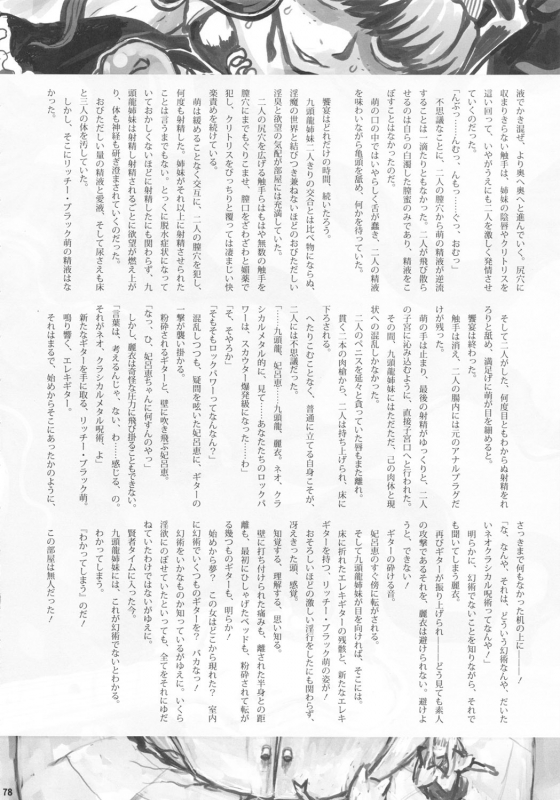 液でかき混ぜ、より奥へ奥へと進んでいく。尻穴に
収まりきらない触手は、姉妹の陰唇やクリトリスを
這い回って、いやがうえにも二人を激しく発情させ
ていくのだった。
「んぶっ……んむっ、んもっ……ぐっ、おむっ」
不思議なことに、二人の膣穴から萌の精液が逆流
することは一滴たりともなかった。二人が飛び散ら
せるのは自らの白濁した膣蜜のみであり、精液をこ
ぼすことはなかったのだ。
萌の口の中ではいやらしく舌が蠢き、二人の精液
を味わいながら亀頭を舐め、何かを待っていた。
饗宴はどれだけの時間、続いたろう。
九頭龍姉妹二人きりの交合とは比べ物にならぬ、
淫魔の世界と結びつき兼ねないほどのおびただしい
淫臭と欲望の気配が部屋には充満していた。
二人の尻穴を広げる触手らはもはや無数の触手を
膣穴にまでもぐりこませ、膣口をざわざわと媚薬で
犯し、クリトリスをびっちりと覆っては凄まじい快
楽責めを続けている。
萌は緩めることなく交互に、二人の膣穴を犯し、
何度も射精した。姉妹がそれ以上に射精させられた
ことは言うまでもない。とっくに脱水症状になって
いておかしくないほどに射精したにも関わらず、九
頭龍姉妹は射精し射精されるごとに欲望が燃え上が
り、体も神経も研ぎ澄まされていくのだった。
おびただしい量の精液と愛液、そして尿さえも床
と三人の体を汚していた。
しかし、そこにリッチー・ブラック萌の精液はな
かった。
そして二人がした、何度目ともわからぬ射精をれ
ろりと舐め、満足げに萌が目を細めると。
饗宴は終わった。
触手は消え、二人の腸内には元のアナルプラグだ
けが残った。
萌の手は止まり、最後の射精がゆっくりと、二人
の子宮に沁み込むように、直接子宮口へと行われた。
その間、九頭龍姉妹にはただただ、己の肉体と現
状への混乱しかなかった。
二人のペニスを延々と貪っていた唇もまた離れ、
貫く二本の肉槍から、二人は持ち上げられ、床に
下ろされる。
へたりこむことなく、普通に立てる自身こそが、
二人には不思議だった。
「……九頭龍、妃呂恵……九頭龍、麗衣。ネオ、クラ
シカルメタル的に、見て……あなたたちのロックパ
ワーは、スカウター爆発級になった……わ」
「そ、そやろか」
「そもそもロックパワーってなんなん？」
混乱しつつも、疑問を呟いた妃呂恵に、ギターの
一撃が襲い掛かる。
粉砕されるギターと、壁に吹き飛ぶ妃呂恵。
「なっ、ひ、妃呂恵ちゃんに何すんのやっ」
しかし、麗衣は奇怪な圧力に飛び掛ることもできない。
「言葉は、考えるんじゃ、ない、わ……感じる、の。
それがネオ、クラシカルメタル呪術、よ」
新たなギターを手に取る、リッチー・ブラック萌。
鳴り響く、エレキギター。
それはまるで、始めからそこにあったかのように、
さっきまで何もなかった机の上に――！
「な、なんや、それは、どういう幻術なんや、だいた
いネオクラシカル呪術ってなんや！」
明らかに、幻術でないことを知りながら、それで
も聞いてしまう麗衣。
再びギターが振り上げられ――どう見ても素人
の攻撃であるそれを、麗衣は避けられない。避けよ
うと、できない！
ギターの砕ける音。
妃呂恵のすぐ傍に転がされる。
そして九頭龍姉妹が目を向ければ、そこには。
床に折れたエレキギターの残骸と、新たなエレキ
ギターを持つ、リッチー・ブラック萌の姿が！
おそろしいほどの激しい淫行をしたにも関わらず、
冴えきった頭、感覚。
知覚する、理解する、思い知る。
壁に打ち付けられた痛みも、離された半身との距
離も、最初にひしゃげたベッドも、粉砕されて転が
る幾つものギターも、明らか！
始めから夢？　この女はどこから現れた？　室内
に幻術でいくつものギターを？　バカなっ！
幻術をいかなものか知っているがゆえに。いくら
淫欲にのぼせていたといっても、全てをそれにゆだ
ねていたわけではないがゆえに。
賢者タイムに入った今。
九頭龍姉妹には、これが幻術でないとわかる。
わかってしまう。
『わかってしまう』のだ！
この部屋は無人だった！
78